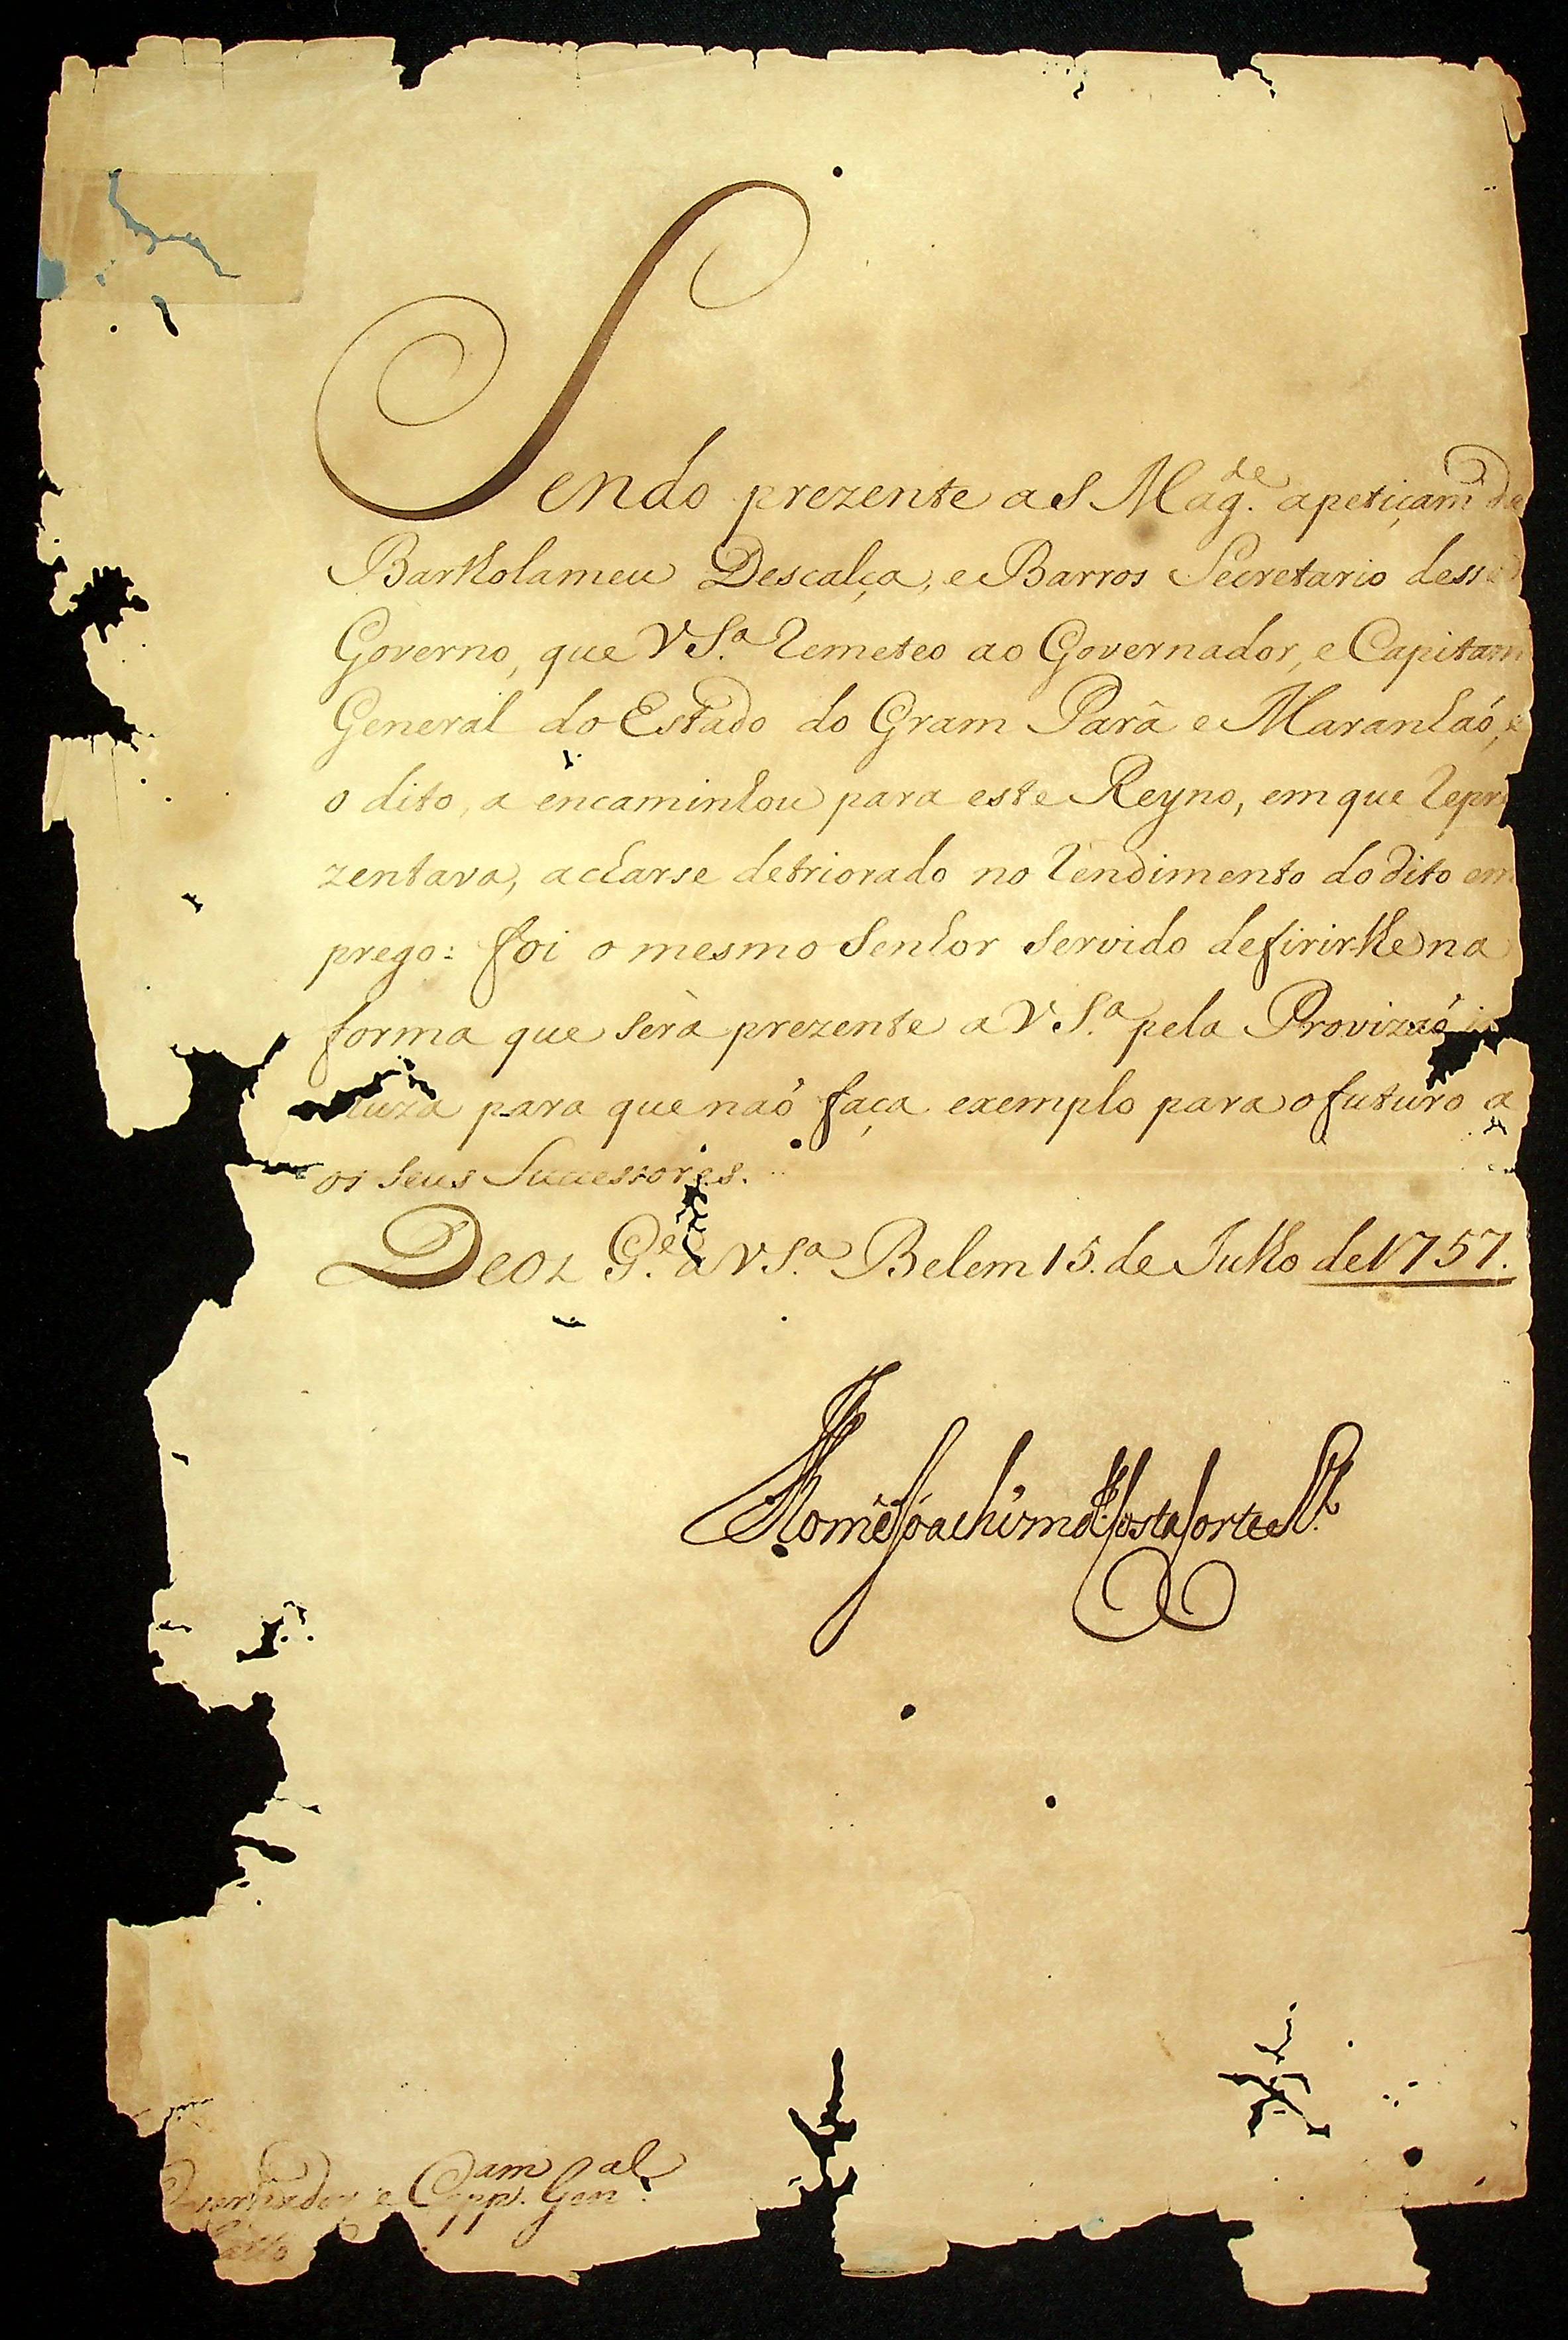 Sendo prezente a S Mag.de a petiçam de
Bartholameu Descalça, e Barros Secretario desse
Governo, que V S.a remeteo ao Governador, e Capitam
General do Estado do Gram Parâ e Maranhaó, e
o dito, a encaminhou para este Reyno, em que repre
zentava, acharse detriorado no rendimento do dito em
prego: foi o mesmo Senhor Servido defirirlhe na
forma que serà prezente a V S.a pela Provizaó
cluza para que naó faça exemplo para o futuro a
os seus Successores.
Deoz G.e a V S.a Belem 15. de Julho de 1757.
Thomê Joachim da Costa Corte R.l
Governador e Capp.am Gen.al